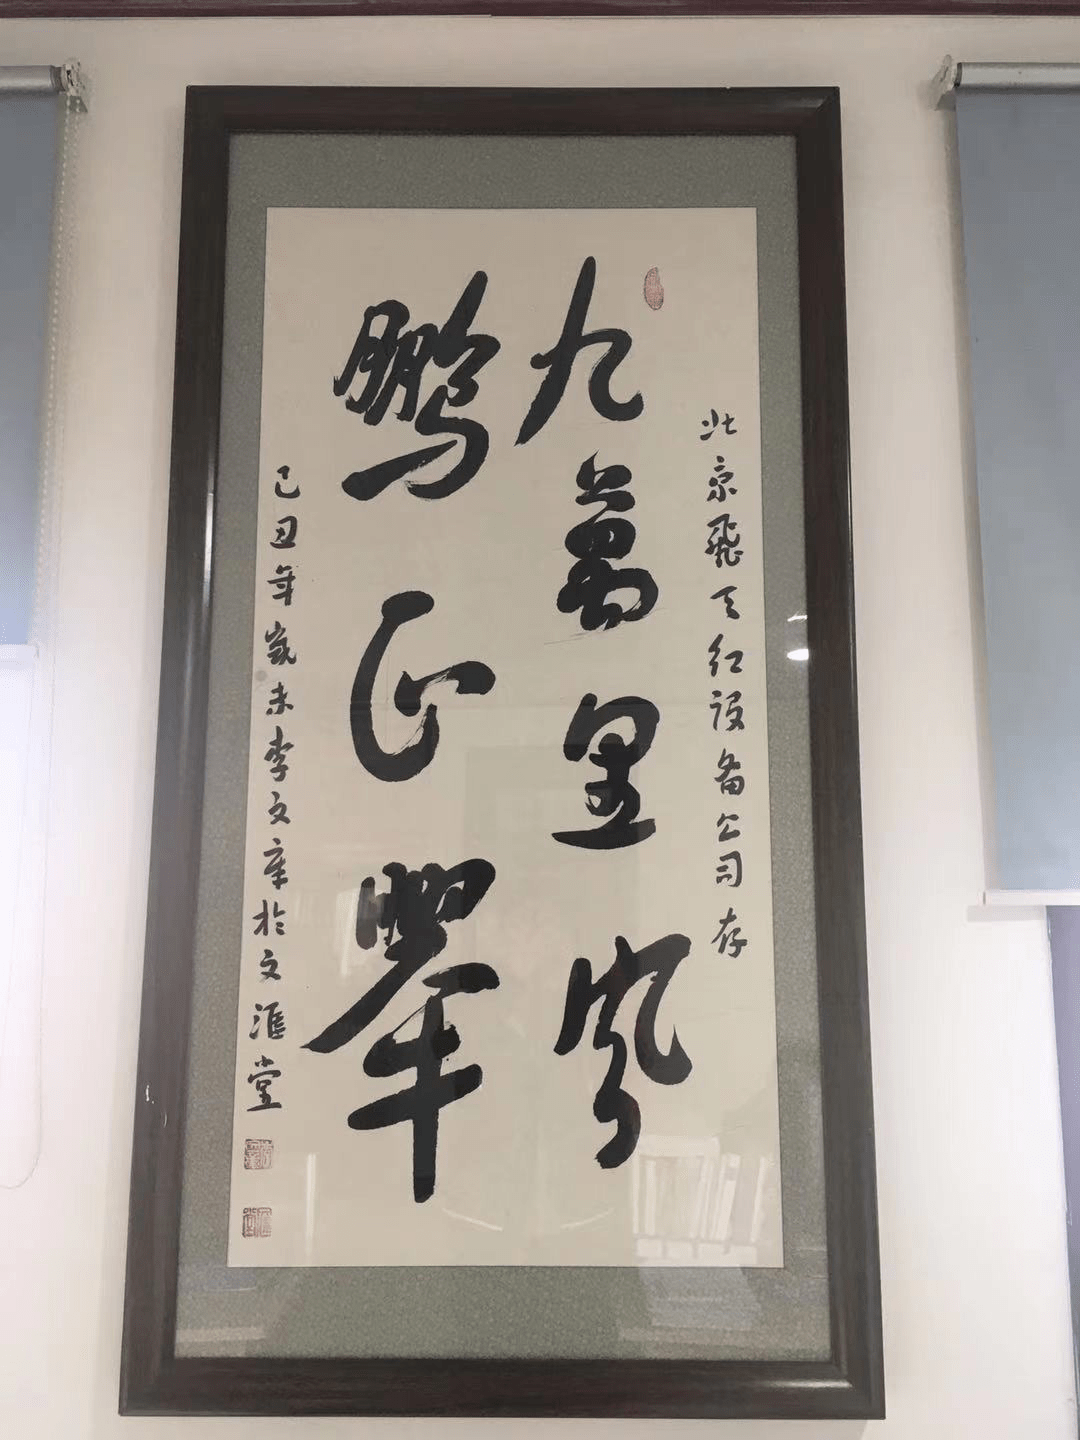 北京飛天红设备公司存
九萬里風
鹏正舉
己丑年歲末李文章於文滙堂